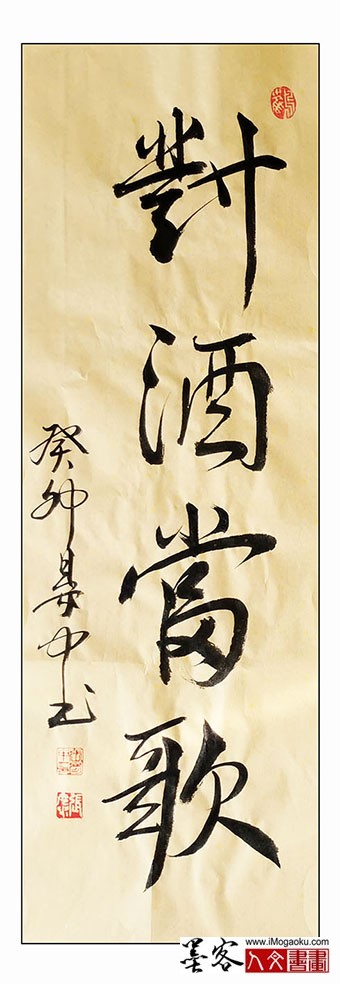 對酒當歌
癸卯
墨客
www.iMogaoku.com
人文書畫